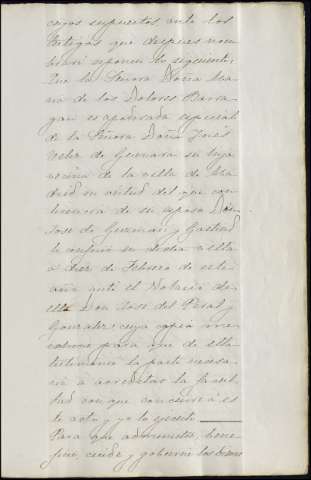 cuyos supuestos, ante los
testigos que despues nom
braré esponen lo siguiente:
Que la Señora Doña Ma
ria de los Dolores Barra
gan es apoderada especial
de la Señora Doña
de Guevara su hija
vecina de la villa de Ma
drid en virtud del que con
licencia de su esposo Don
Jose de Guzman y
le confirió en dicha villa
a diez de Febrero de este
año ante el Notario de
ella Don Jose del Peral y
Gonzalez; cuya copia me
para que de ella
testimonie la parte necesa
ria á acreditar la facul
tad con que concurre á es
te acto; y yo la
Para que administre, bene
ficie, cuide y gobierne los bienes